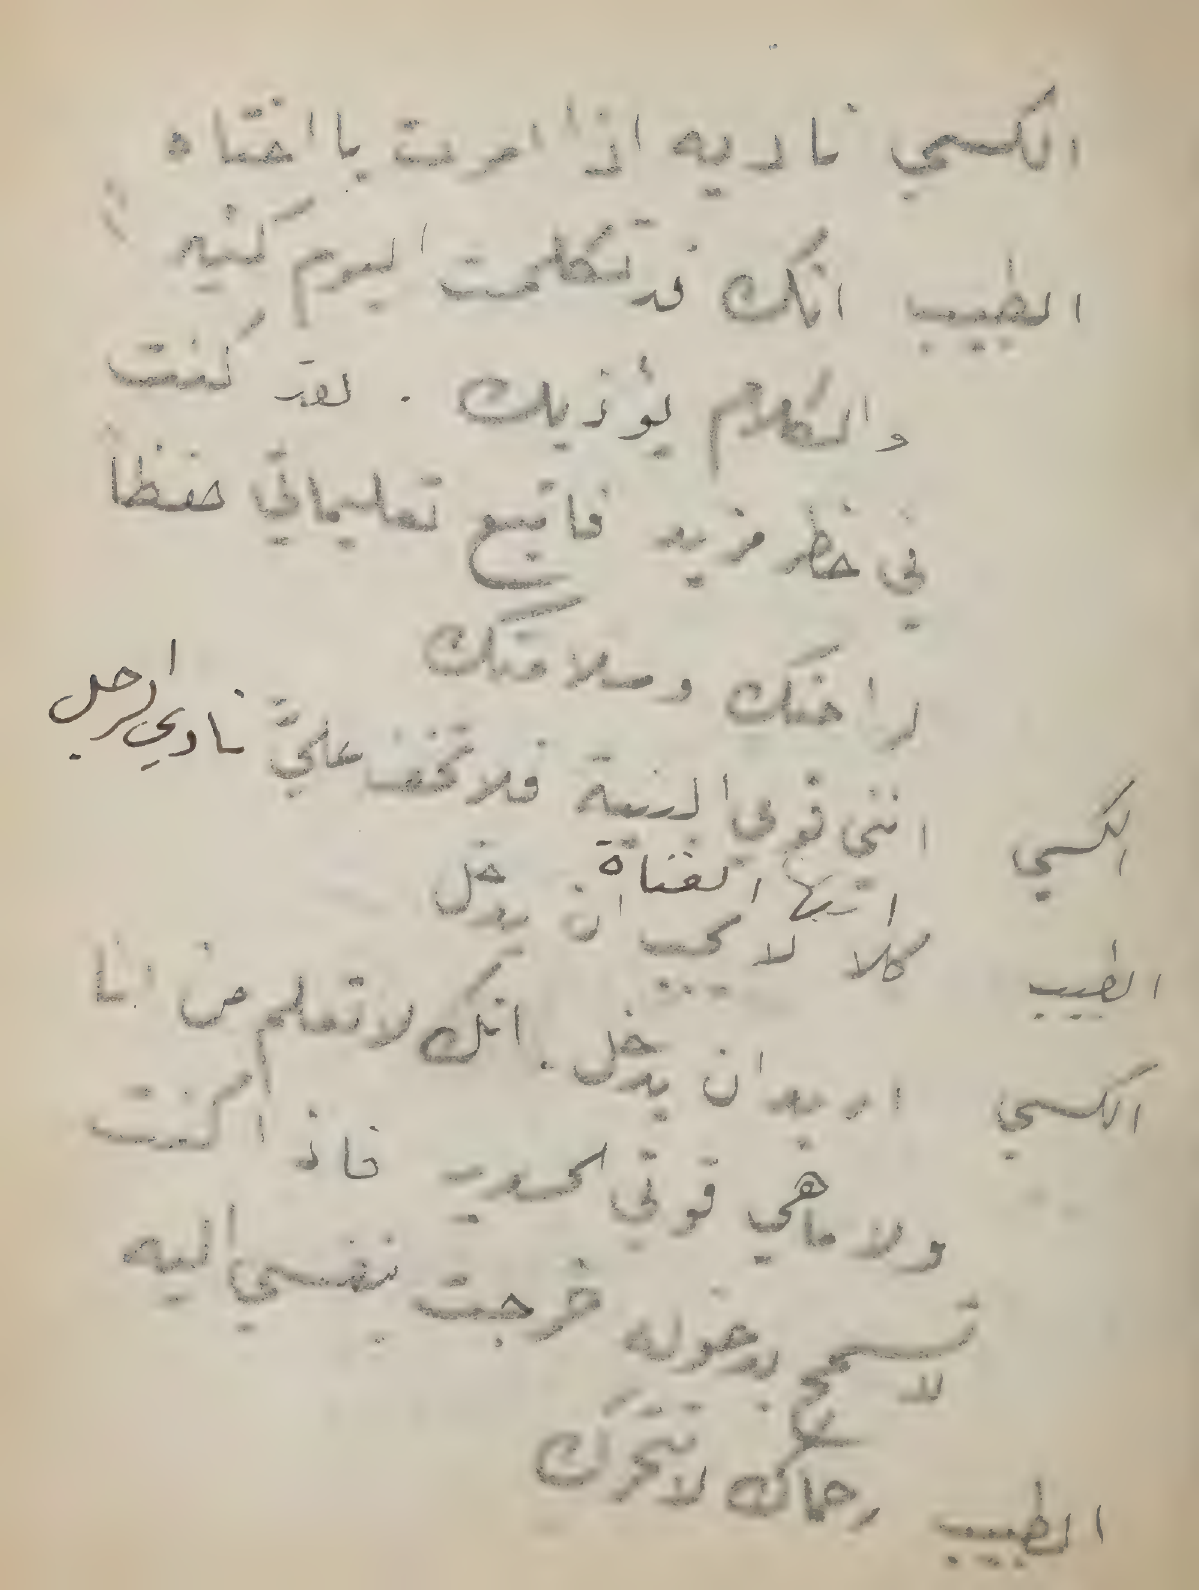 الكسي ناديه اذا امرت يا اختاه
الطبيب انك قد تكلمت اليوم كثيرا
والكلام يؤذيك . لقد كنت
في خطر مزيد فاتبع تعليماتي حفظاً
لراحتك وسلامتك
الكسي انني قوي البنية فلا تخف عليّ نادي الرجل
ايتها الفتاة
الطبيب كلا لا يجب ان يدخل
الكسي اريد ان يدخل . انك لا تعلم من انا
ولا ما هي قوتي فاذا كنت
لا تسمح بدخوله خرجت بنفسي اليه
الطبيب رحماك لا تتحرك